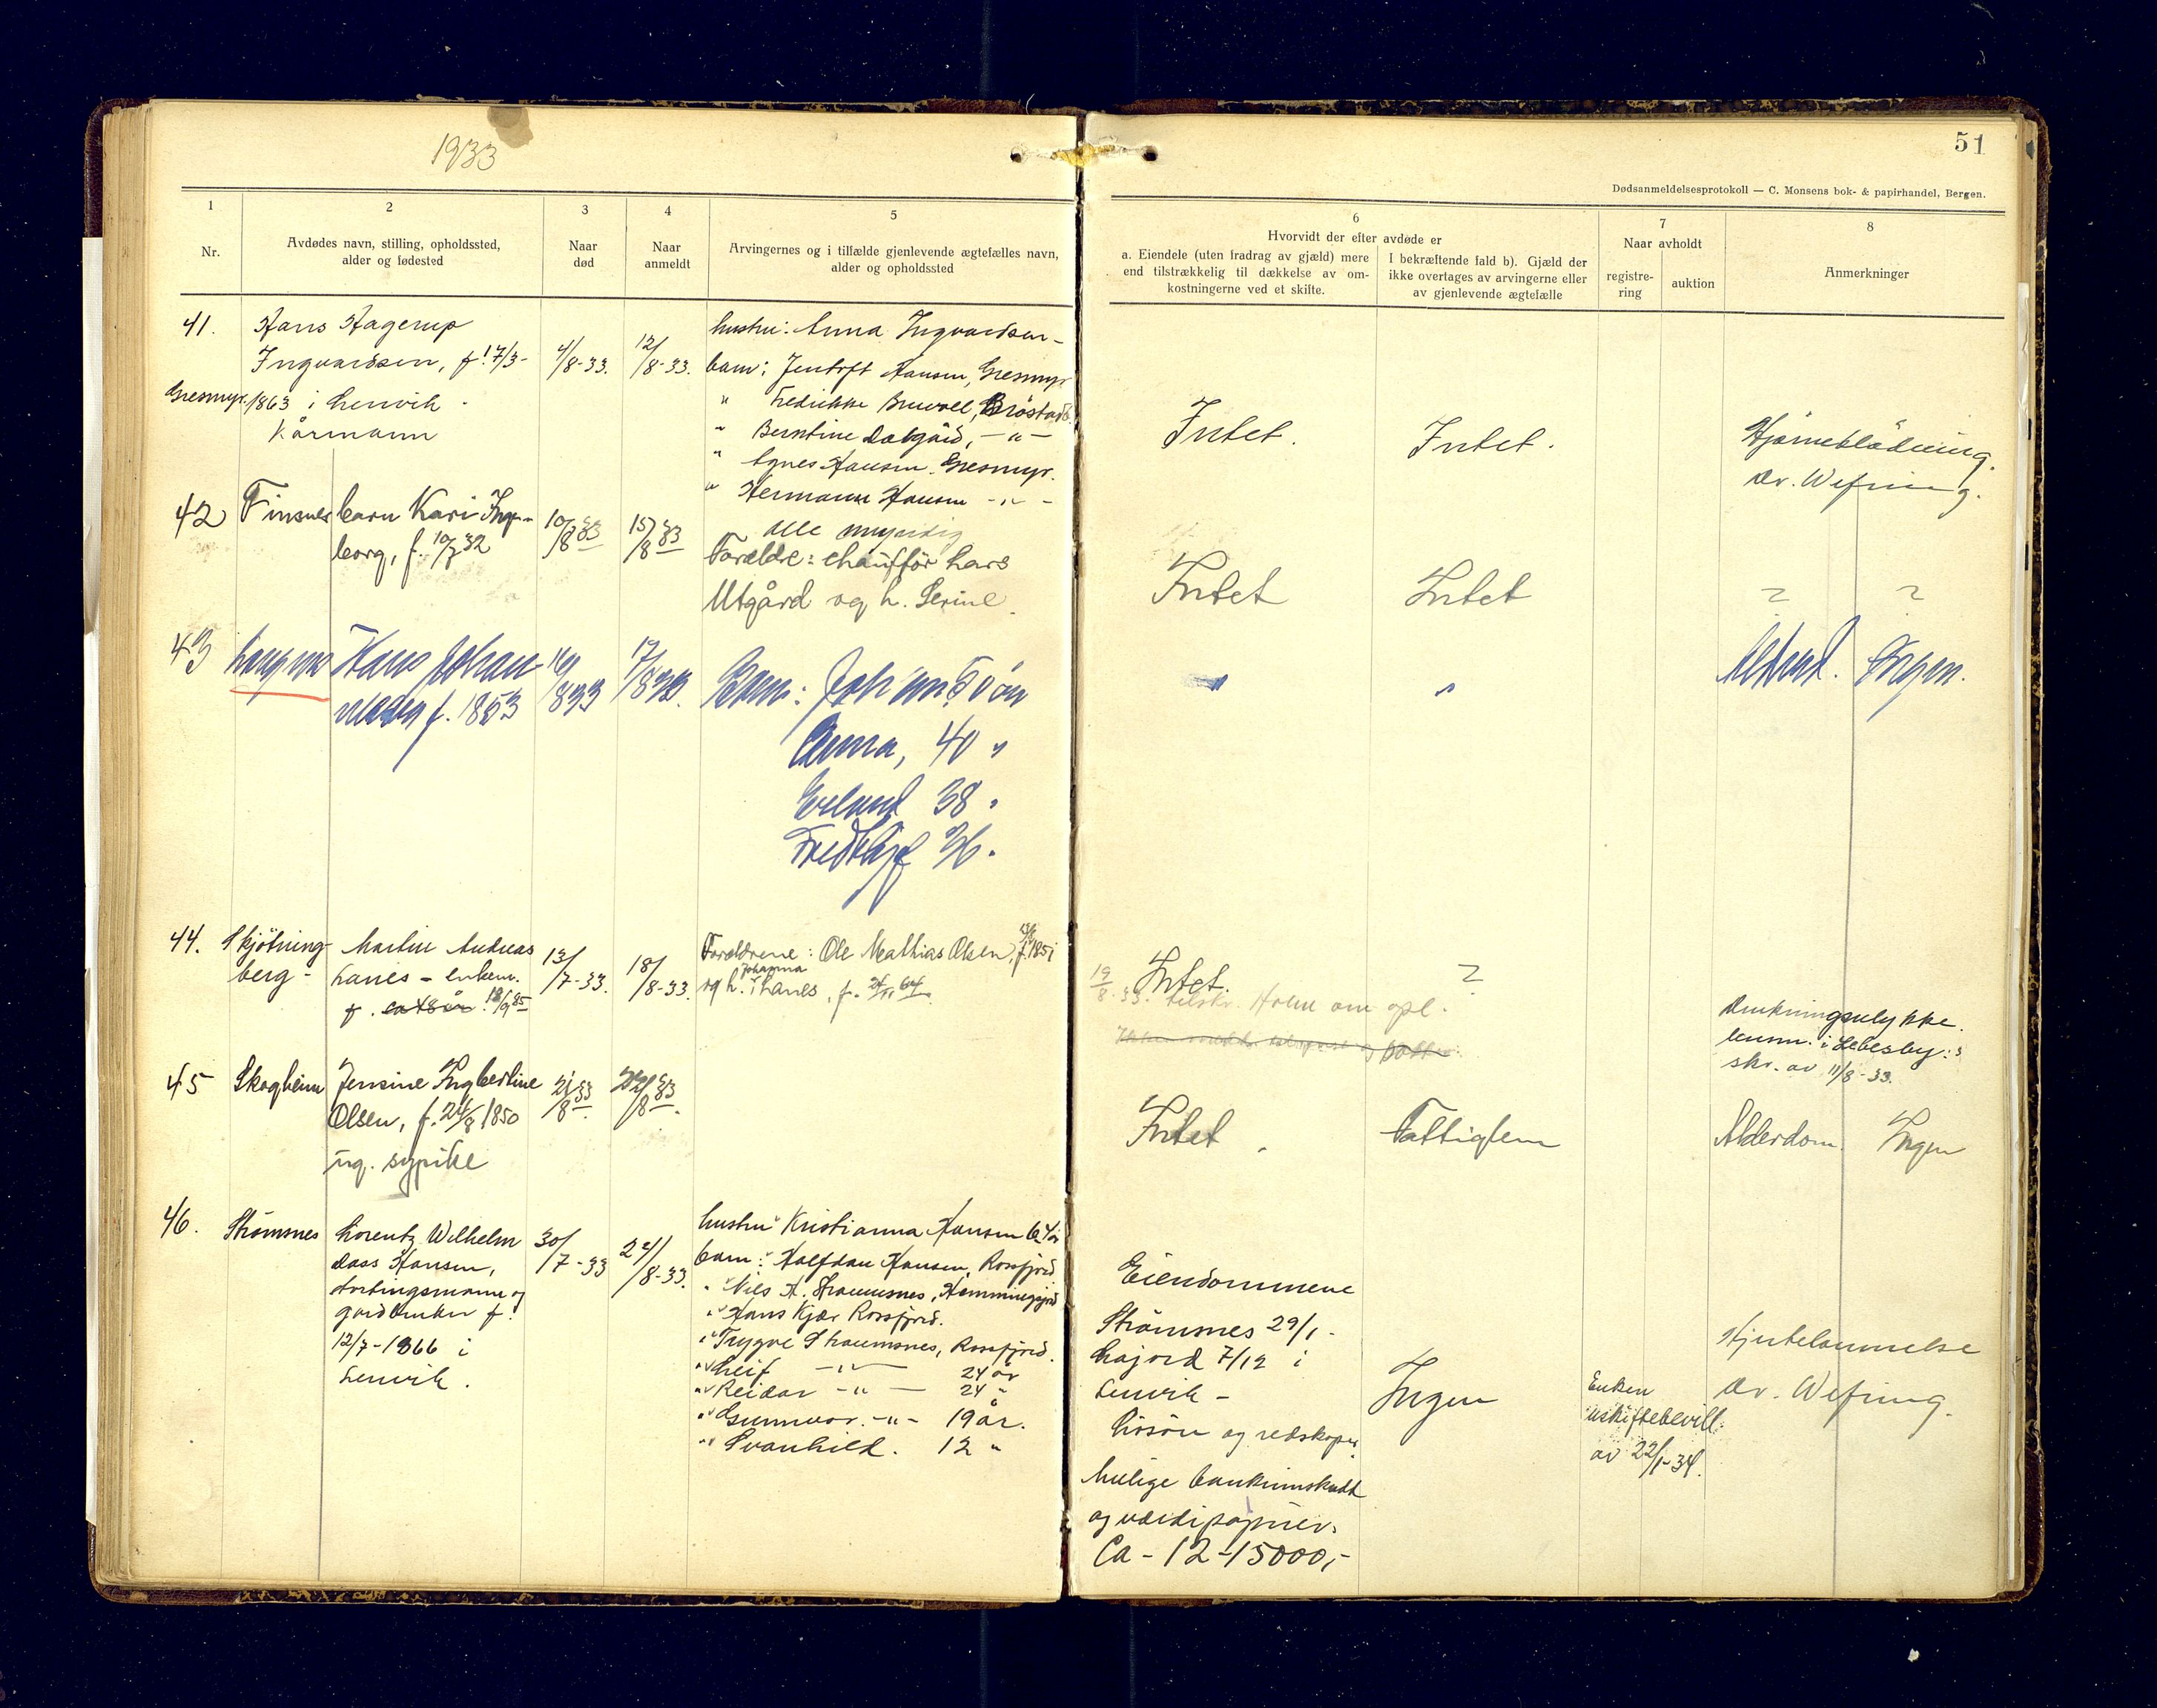 1933
51
Dødsanmeldelsesprotokoll — C. Monsens bok- & papirhandel, Bergen.
1
2
3
4
5
6
7
8
Nr.
Avdødes navn, stilling, opholdssted,
alder og fødested
Naar
død
Naar
anmeldt
Arvingernes og i tilfælde gjenlevende ægtefælles navn,
alder og opholdssted
Hvorvidt der efter avdøde er
a. Eiendele (uten fradrag av gjæld) mere
end tilstrækkelig til dækkelse av om-
kostningerne ved et skifte.
I bekræftende fald b). Gjæld der
ikke overtages av arvingerne eller
av gjenlevende ægtefælle
Naar avholdt
registre-
ring
auktion
Anmerkninger
41.
Hans Hagerup
Ingvardsen, f. 17/3-
Gresmyr. 1863 i Lenvik.
Kårmann
4/8-33.
12/8-33.
hustru: Anna Ingvardsen -
barn: Jentoft Hansen, Gresmyr
" Fredrikke Bruvoll, Brøstadb.
" Berntine Dalgård, -"-
" Agnes Hansen, Gresmyr.
" Hermann Hansen -"-
alle myndig
Intet.
Intet.
Hjerneblødning.
Dr. Wefring.
42
Finsnes
barn Kari Inge-
borg, f. 10/7 32
10/8 33
15/8 33
Forældre: chauffør Lars
Utgård og h. Serine
Intet
Intet
?
?
43
Langnes
Hans Johan
f. 1853
16/8 33
17/8 33.
Barn: Johan 50 år
Anna, 40 "
Erland 38 "
Fredthjof 36 "
"
"
Alderd. Ingen.
44.
Skjøtning-
berg -
Martin Andreas
Hanes - enkem.
f. ca 48 år. 18/9 85
13/7-33.
18/8-33.
Forældrene: Ole Mathias Olsen, f. 1851
og h. Johanna Hanes, f. 64.
Intet.
?
19/8-33. tilskr. Holm om opl.
Drukningsulykke.
lensm. i Lebesby:s
skr. av 11/8-33.
45
Skogheim
Jensine Ingbertine
Olsen, f. 24/8 1850
ug. sypike
21/8 33
22/8 33
Intet.
Fattiglem
Alderdom.
Ingen
46.
Strømsnes
Lorentz Wilhelm
Dass Hansen,
stortingsmann og
gårdbruker f.
12/7-1866 i
Lenvik.
30/7-33
24/8-33.
hustru Kristianna Hansen 64 år
barn: Halfdan Hansen, Rossfjord
" Nils H. Straumsnes, Hemmingsjord
" Hans Kjær Rossfjord.
" Trygve Straumsnes, Rossfjord.
" Leif -"- 24 år
" Reidar -"- 24 "
" Gunnvor. -"- 19 år.
" Svanhild. 12 "
Eiendommene
Strømsnes 29/1 -
Løjord 7/12 i
Lenvik -
Løsøre og redskaper.
Mulige bankinnskudd
og værdipapirer.
Ca - 12-15000,-
Ingen
Enken
uskiftebevill.
av 22/1-34.
Hjertelammelse
Dr. Wefring.